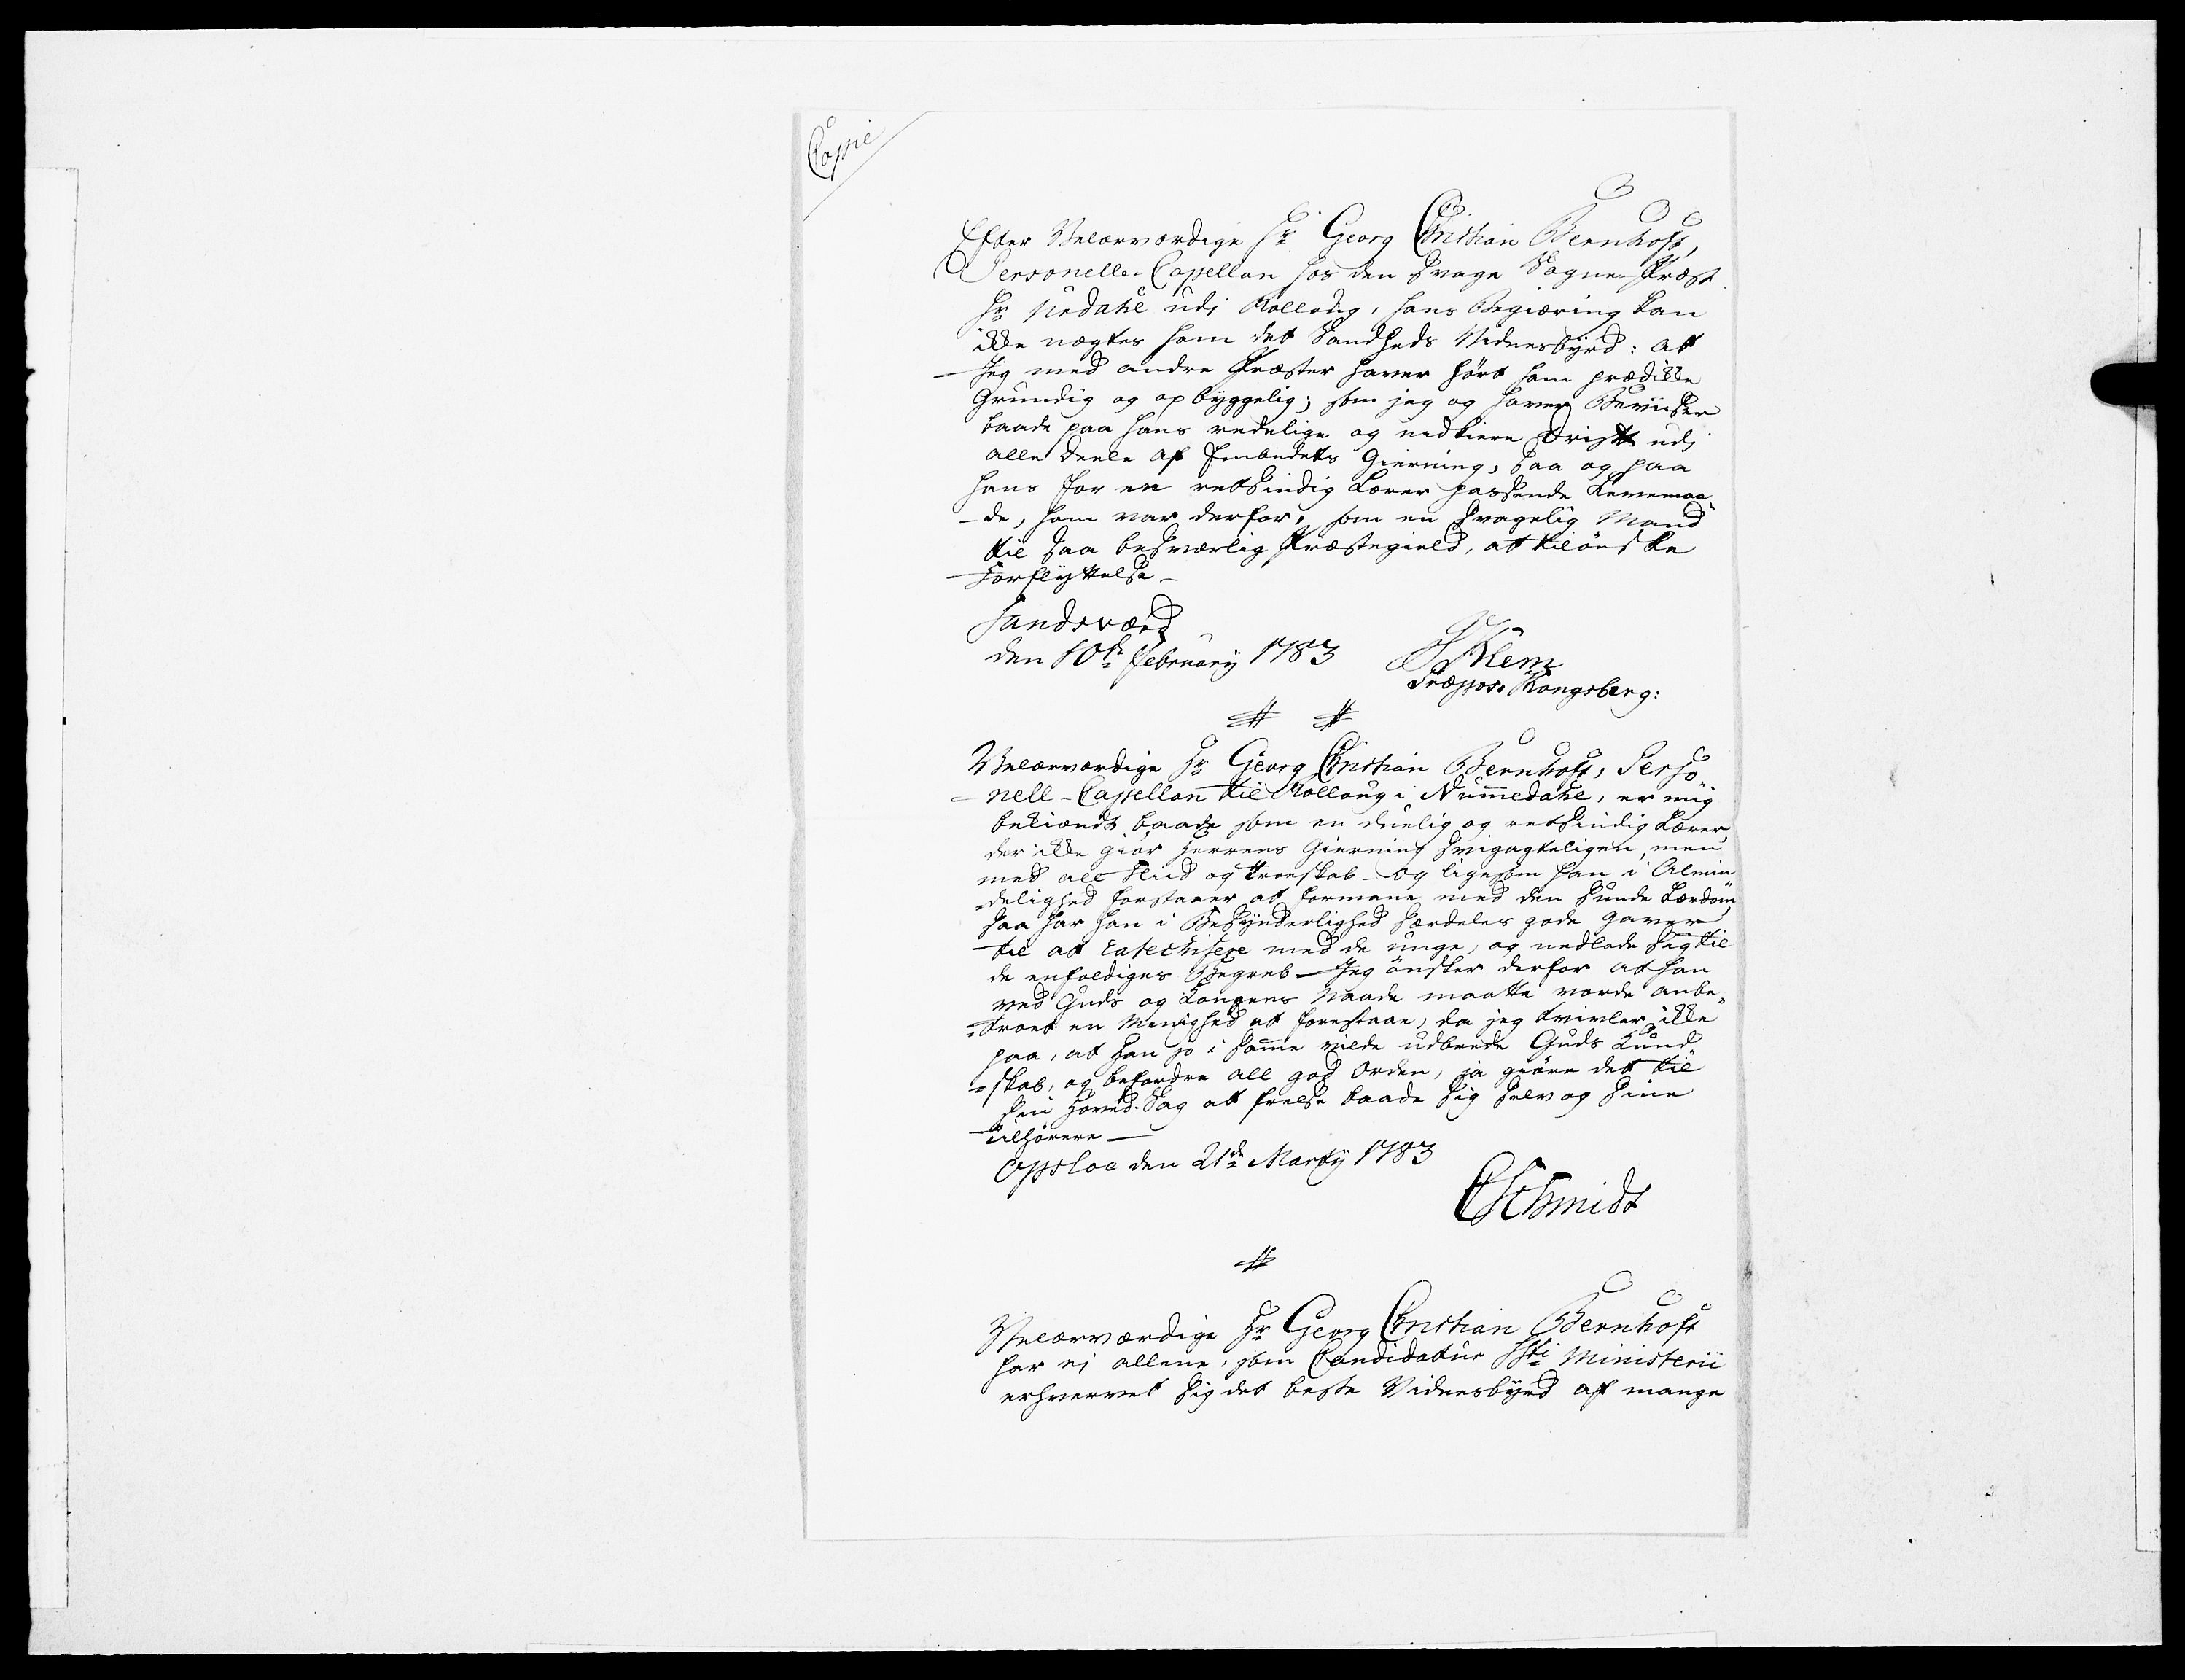 Copie
Efter Velærværdige Hr. Georg Christian Bernhoft,
Personelle-Capellan hos den svage Sogne-Præst
Hr Nodahl udj Rolloug, hans Begiæring kan
ikke nægtes ham det Sandheds Vidnesbyrd: at
Jeg med andre Præster haver hørt ham prædikke
Grundig og opbyggelig; som jeg og haver Beviser
baade paa hans redelige og nidkiere Drift udj
alle Deele af Embedets Gierning, saa og paa
hans for en retsindig Lærer passende Levemaa-
-de, ham var derfor, som en svagelig Mand
til saa besværlig Præstegield, at tilønske
Forflyttelse-
Sandsværd
den 10de February 1783
J Klem
Præpos. Kongsberg:
Velærværdige Hr Georg Christian Bernhoft, Perso-
-nell-Capellan til Rolloug i Nummedahl, er mig
bekiendt baade som en duelig og retsindig Lærer,
der ikke giør Herrens Gierning svigagteligen, men
med all Fliid og Troeskab- og ligesom han i Almin
-delighed forstaaer at formane med den sunde Lærdom,
saa har han i Besynderlighed særdeles gode Gaver
til at catechisere med de unge, og nedlade sig til
de enfoldiges Begreb- Jeg ønsker derfor at han
ved Guds og Kongens Naade maatte vorde anbe-
-troet en Menighed at forestaae, da jeg tvivler ikke
paa, at han jo i samme vilde udbrede Guds Kund
-skab, og befordre all god Orden, ja giøre det til
sin Hoved-Sag at frelse baade sig selv og sine
Tilhørere-
Opsloe den 21de Marty 1783
CSchmidt
Velærværdige Hr Georg Christian Bernhoft
har ej allene, som Candidatus SSti Ministerii
erhvervet sig det beste Vidnesbyrd af mange